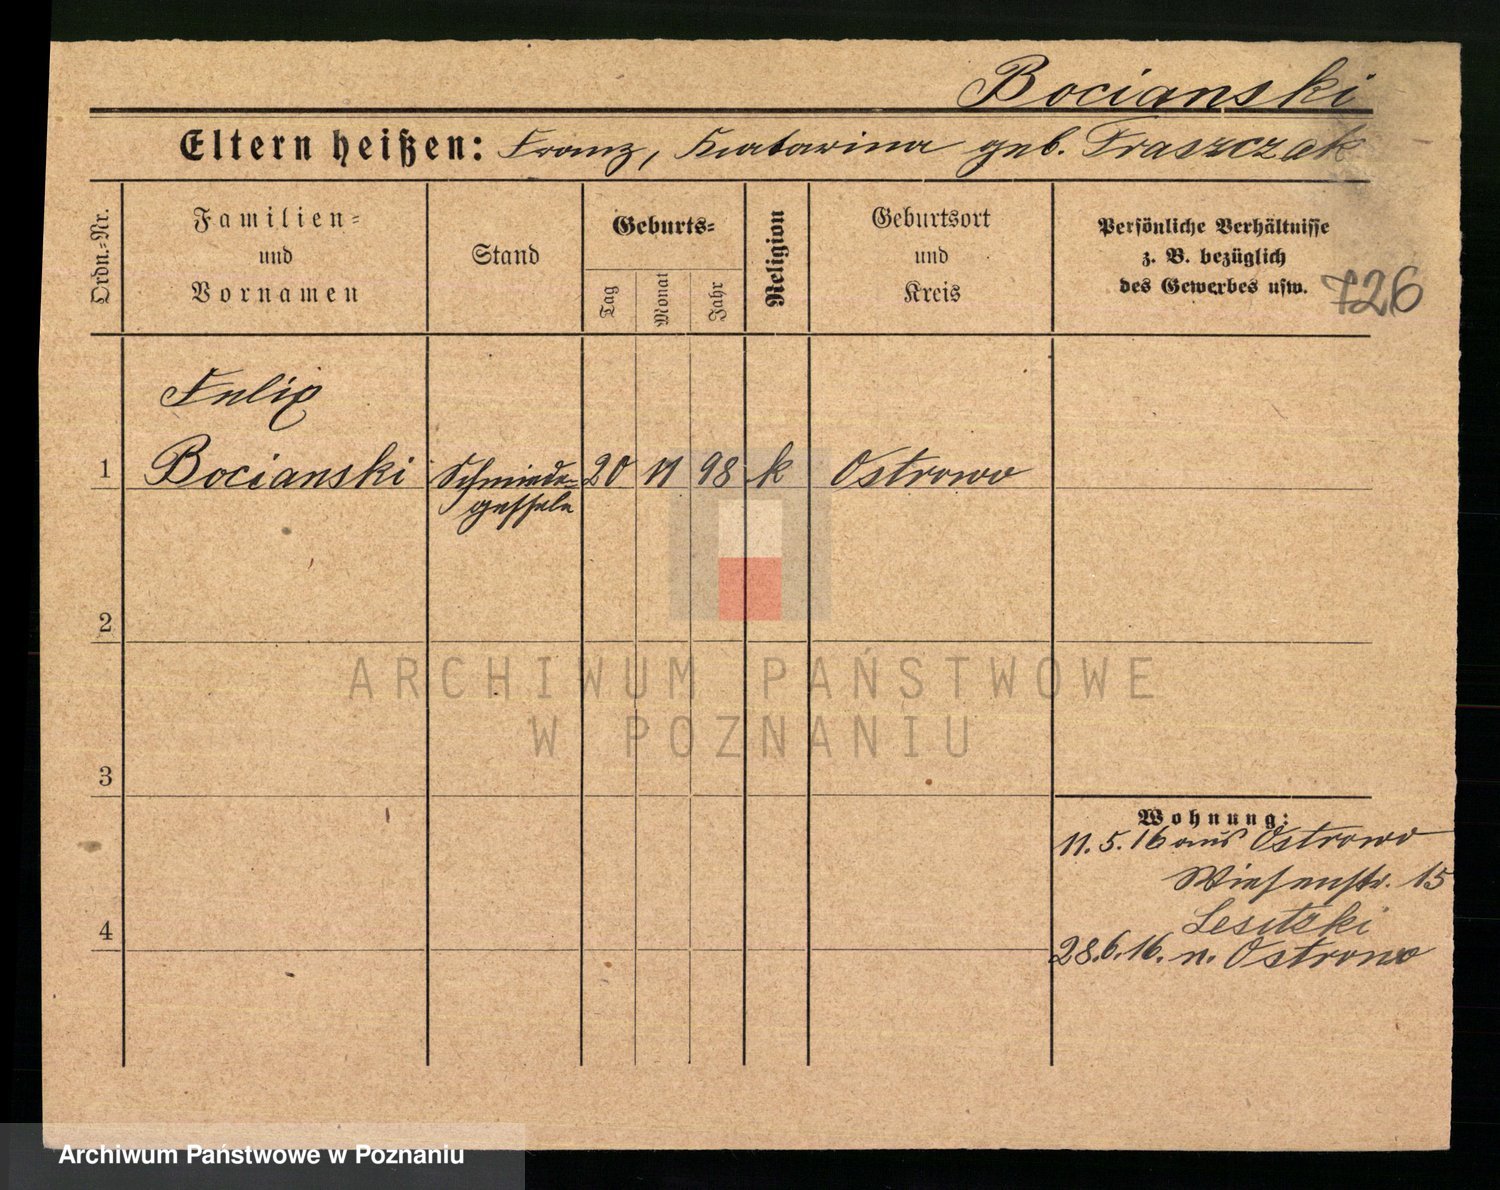 Bocianski
Eltern heißen: Franz, Katarina geb. Fraszczak
Ordn.-Nr.
Familien-
und
Vornamen
Stand
Geburts-
Tag
Monat
Jahr
Religion
Geburtsort
und
Kreis
Persönliche Verhältnisse
z. B. bezüglich
des Gewerbes usw.
726
Felix
1 Bocianski Schmiede- 20 11 98 k Ostrowo
geselle
2
3
4
ARCHIWUM PAŃSTWOWE
W POZNANIU
Wohnung:
11.5.16 aus Ostrowo
Wiesenstr. 15
Lesitzki
28.6.16. n. Ostrowo
Archiwum Państwowe w Poznaniu